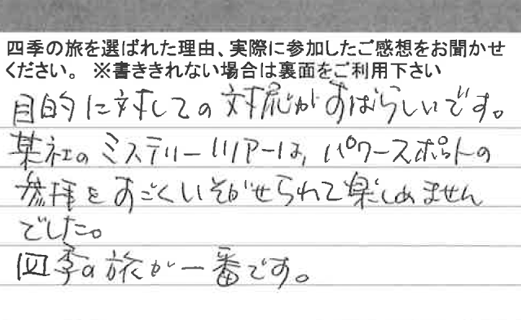 四季の旅を選ばれた理由、実際に参加したご感想をお聞かせ
ください。 ※書ききれない場合は裏面をご利用下さい
目的に対しての対応がすばらしいです。
某社のミステリーツアーは、パワースポットの
参拝をすごくいそがせられて楽しめません
でした。
四季の旅が一番です。